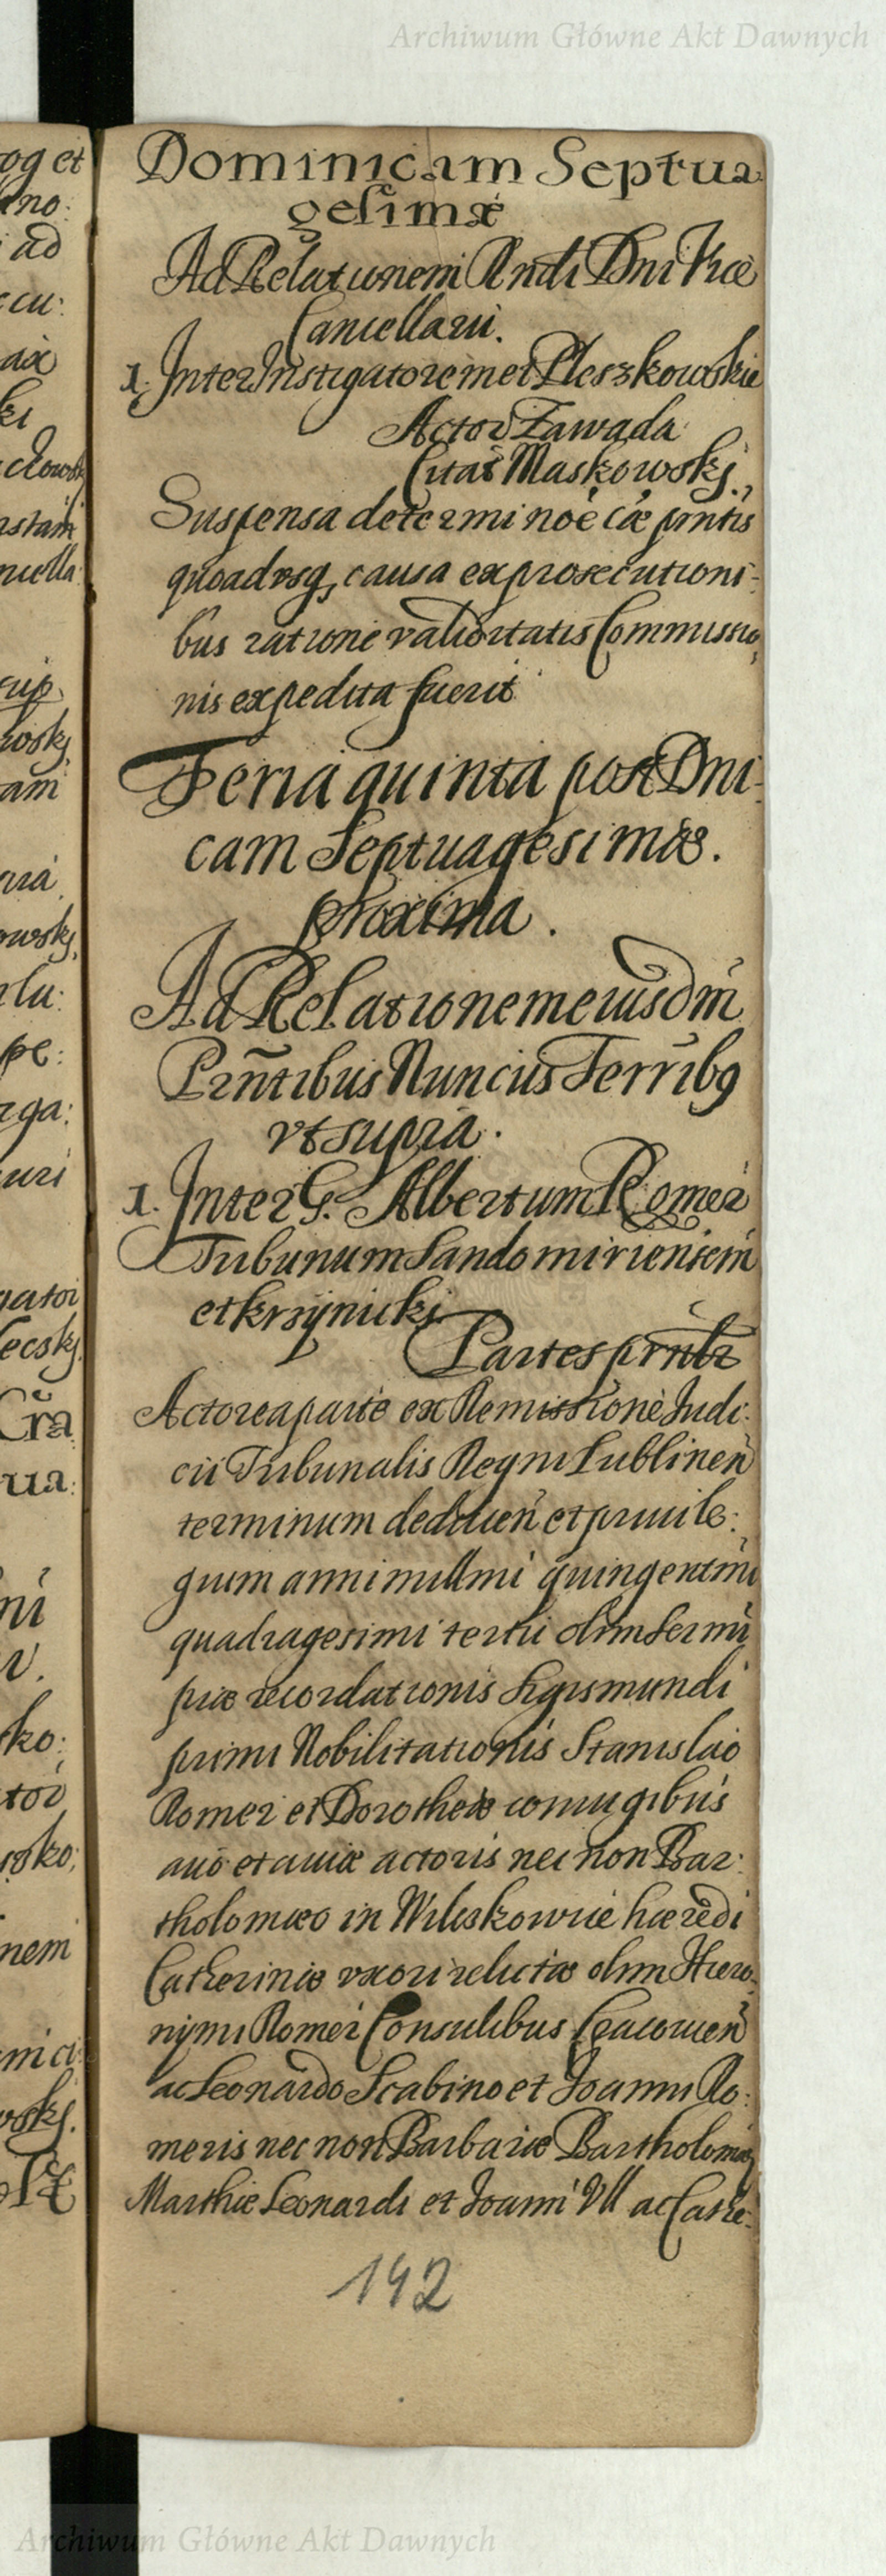 Archiwum Główne Akt Dawnych
Dominicam Septua
gesimæ
Ad Relationem Rndi Dni Vice
Cancellarii.
1. Inter Instigatorem et Pleszkowskie
Actor Zawada
Citat Maskowskj.
Suspensa determinoe cæ pntis
quoadusq, causa ex prosecutioni-
bus ratione validitatis Commissio
nis expedita fuerit
Feria quinta post Dni-
cam Septuagesimæ.
proxima.
Ad Relationem eiusdm
Prntibus Nunciis Terribq
vt supra.
1. Inter G. Albertum Romer
Tribunum Sandomiriensem
et krsÿnickj
Partes prntr
Actorea parte ex Remissione Judi:
cii Tribunalis Regni Lublinen
terminum deducen et priuile:
gium anni millmi quingentmi
quadragesimi tertii olim Sermi
piæ recordationis Sigismundi
primi Nobilitationis Stanislao
Romer et Dorotheæ coniugibus
auo et auiæ actoris nec non Bar:
tholomæo in Wiliskowice hæredi
Catherinæ vxori relictæ olim Hiero:
nymi Romer Consulibus Cracouien
ac Leonardo Scabino et Joanni Ro:
meris nec non Barbaræ Bartholomæi
Marthæ Leonardi et Joanni Vll ac Cathe:
142
Archiwum Główne Akt Dawnych